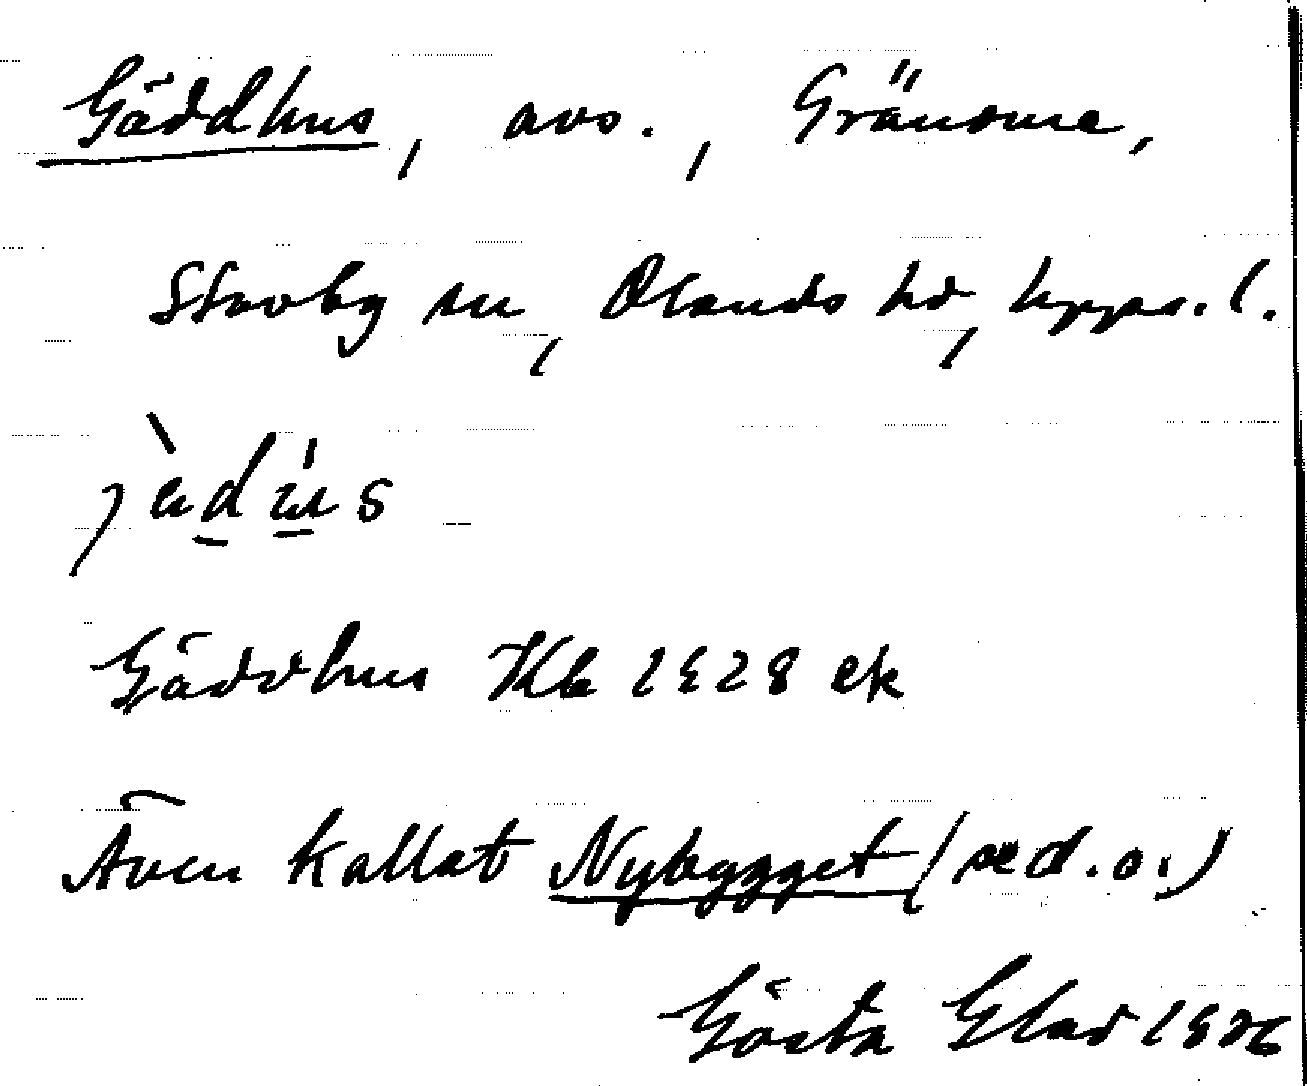 Gäddhus, avs., Gränome,
Stavby sn, Olands hd, Upps. l.
jèdús
Gäddhus Kb 1928 ek
Även kallat Nybygget (se d. o.)
Gösta Elad 1926